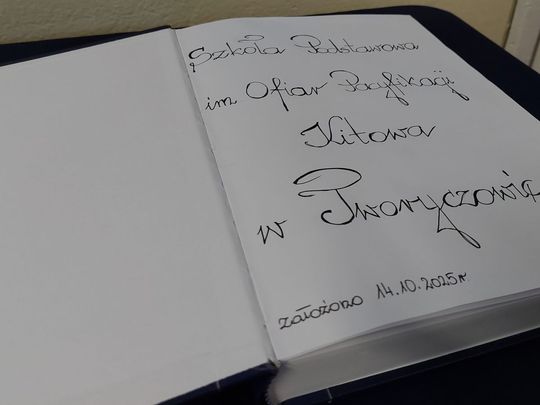 Szkoła Podstawowa
im Ofiar Pacyfikacji
Kitowa
w Tworyczowie
założono 14.10.2025r